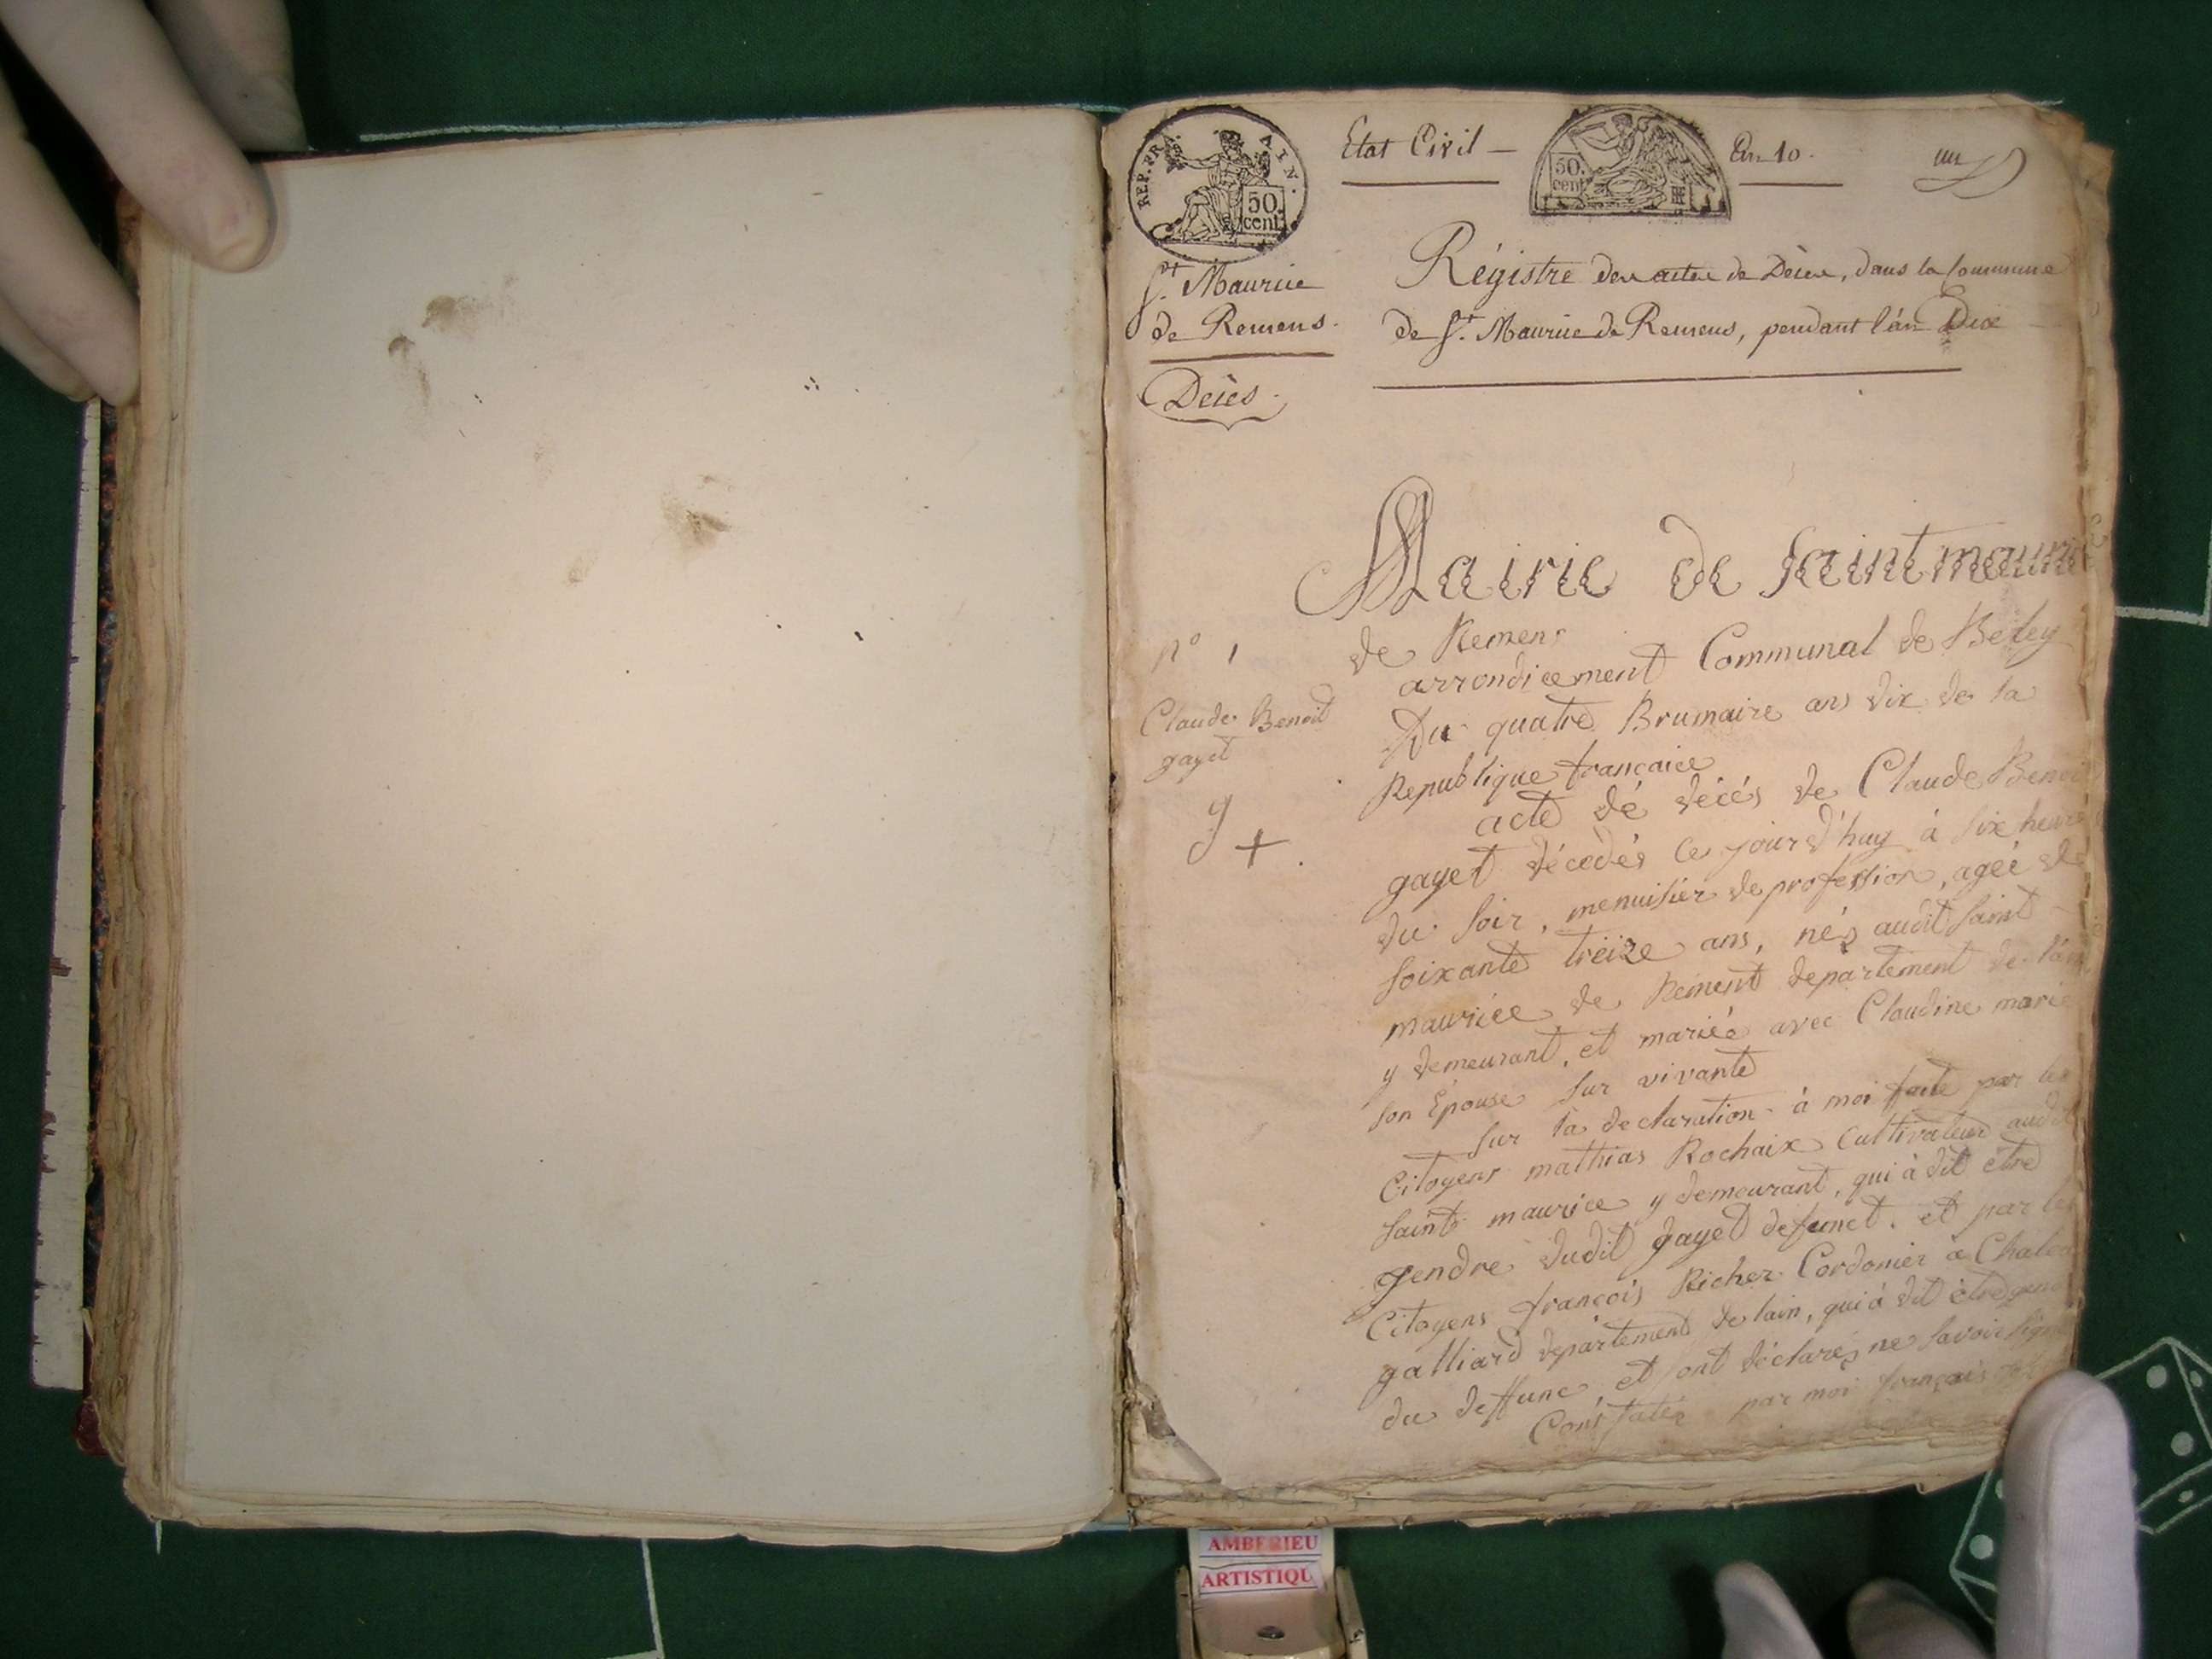 REP. FRA. AIN.
50 cent.
Etat Civil —
50. cent
An 10.
un
St. Maurice
de Remens.
Décès.
Régistre des actes de Décès, dans la Commune
de St. Maurice de Remens, pendant l'an Dix
Mairie de saint mauric
de Remens
arrondicement Communal de Beley
n° 1
Claude Benoit
gayet
g +
Du quatre Brumaire ans dix de la
Republique françaice
acte dé décés de Claude Benoi
gayet décedés ce jourd'huy à six heure
du soir, menuisier de profession, ageé de
soixante treize ans, nés audit saint
maurice de Rement departement de l'ain
y demeurant, et mariéé avec Claudine marie
son Epouse sur vivante
sur la declaration à moi faite par le
Citoyens mathias Rochaix Cultivateur audit
saint maurice y demeurant, qui à dit etre
gendre dudit gayet defunct. et par le
Citoyens françois Richer Cordonier à Chalea
galliard departement de lain, qui à dit être gend
du deffunc, et ont déclarés ne savoir sign
Constatés par moi françois
AMBERIEU
ARTISTIQU